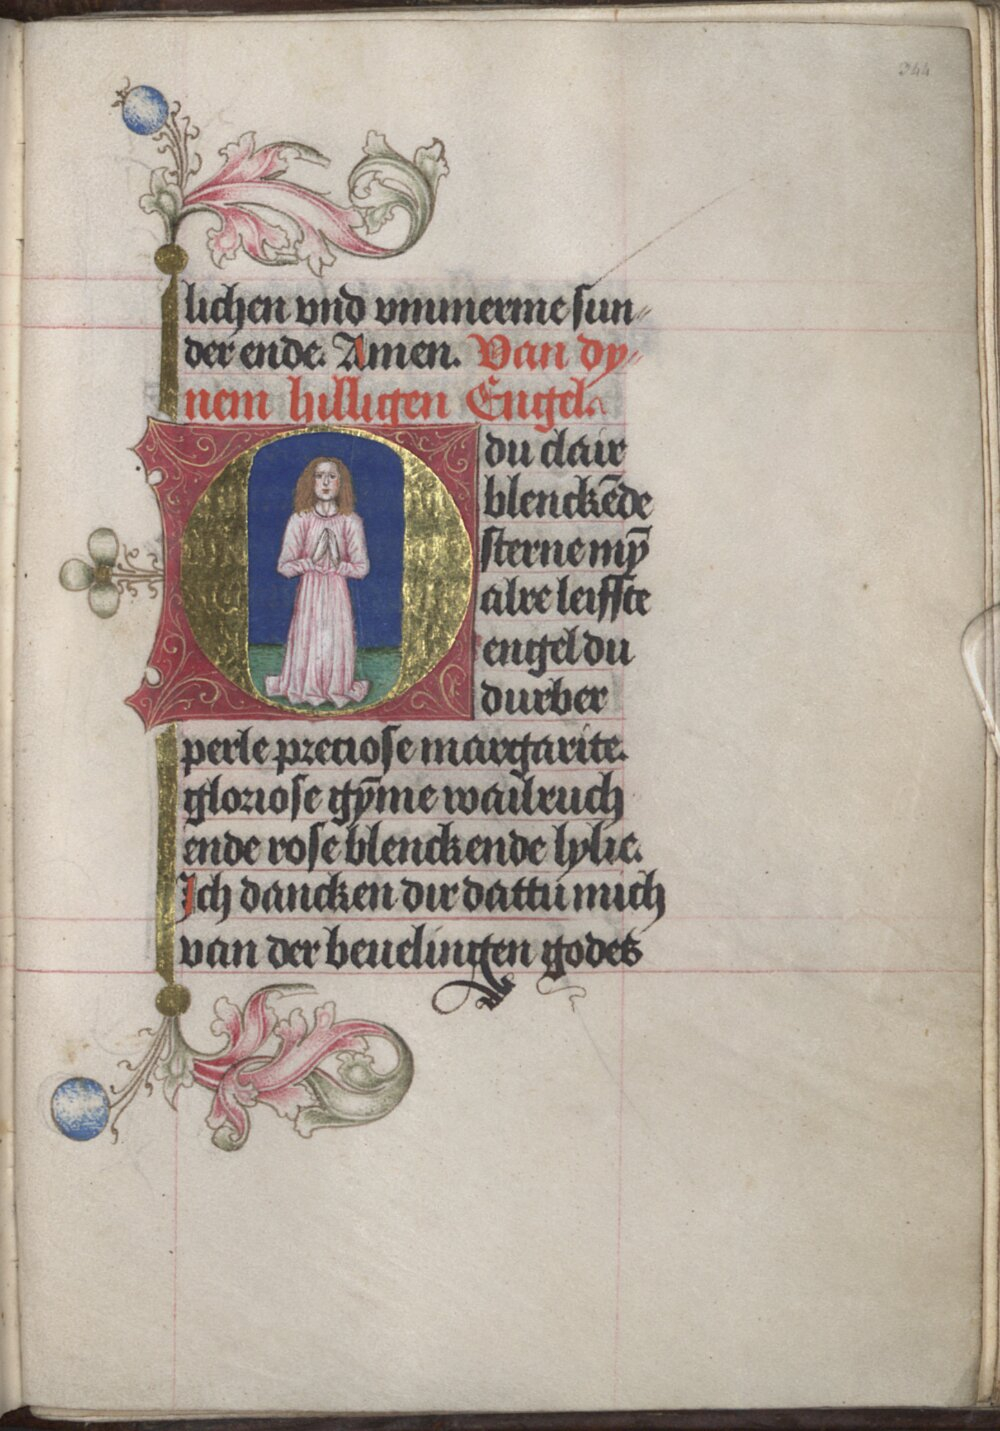 344
lichen vnd vmmerme sun-
der ende. Amen. Van dy-
nem hilligen Engel.
O du clair
blenckēde
sterne mȳ
alre leiffste
engel du
durber
perle preciose margarite.
gloriose gȳme wailruch
ende rose blenckende lylie.
Ich dancken dir dattu mich
van der beuelingen godes